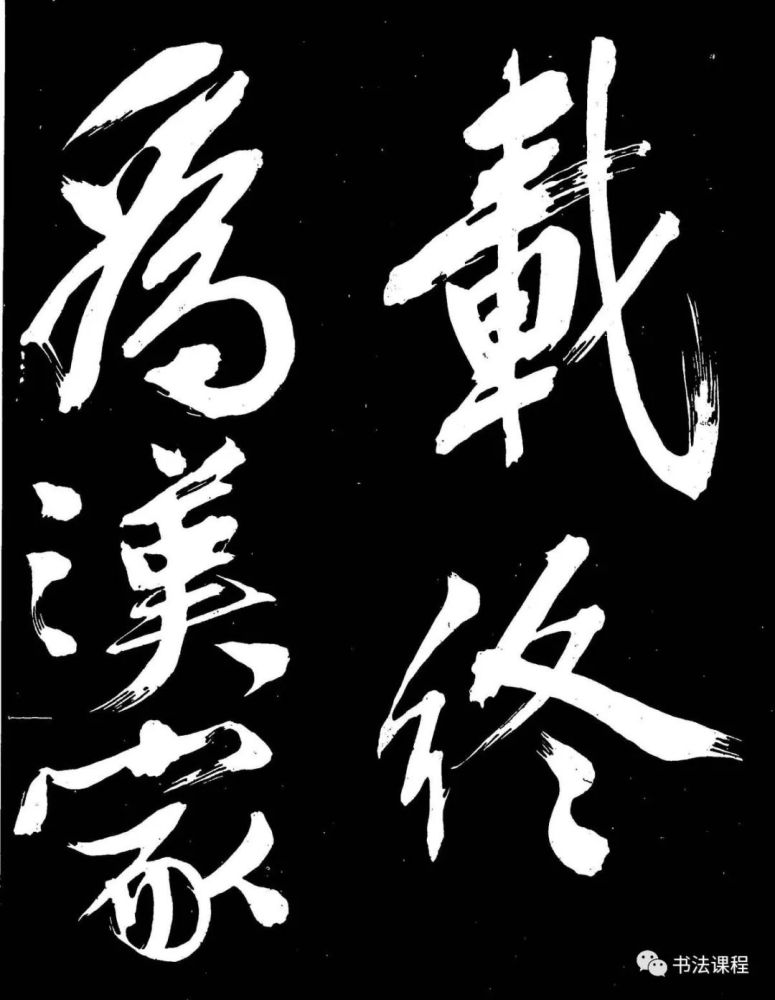 載終
為漢家
书法课程